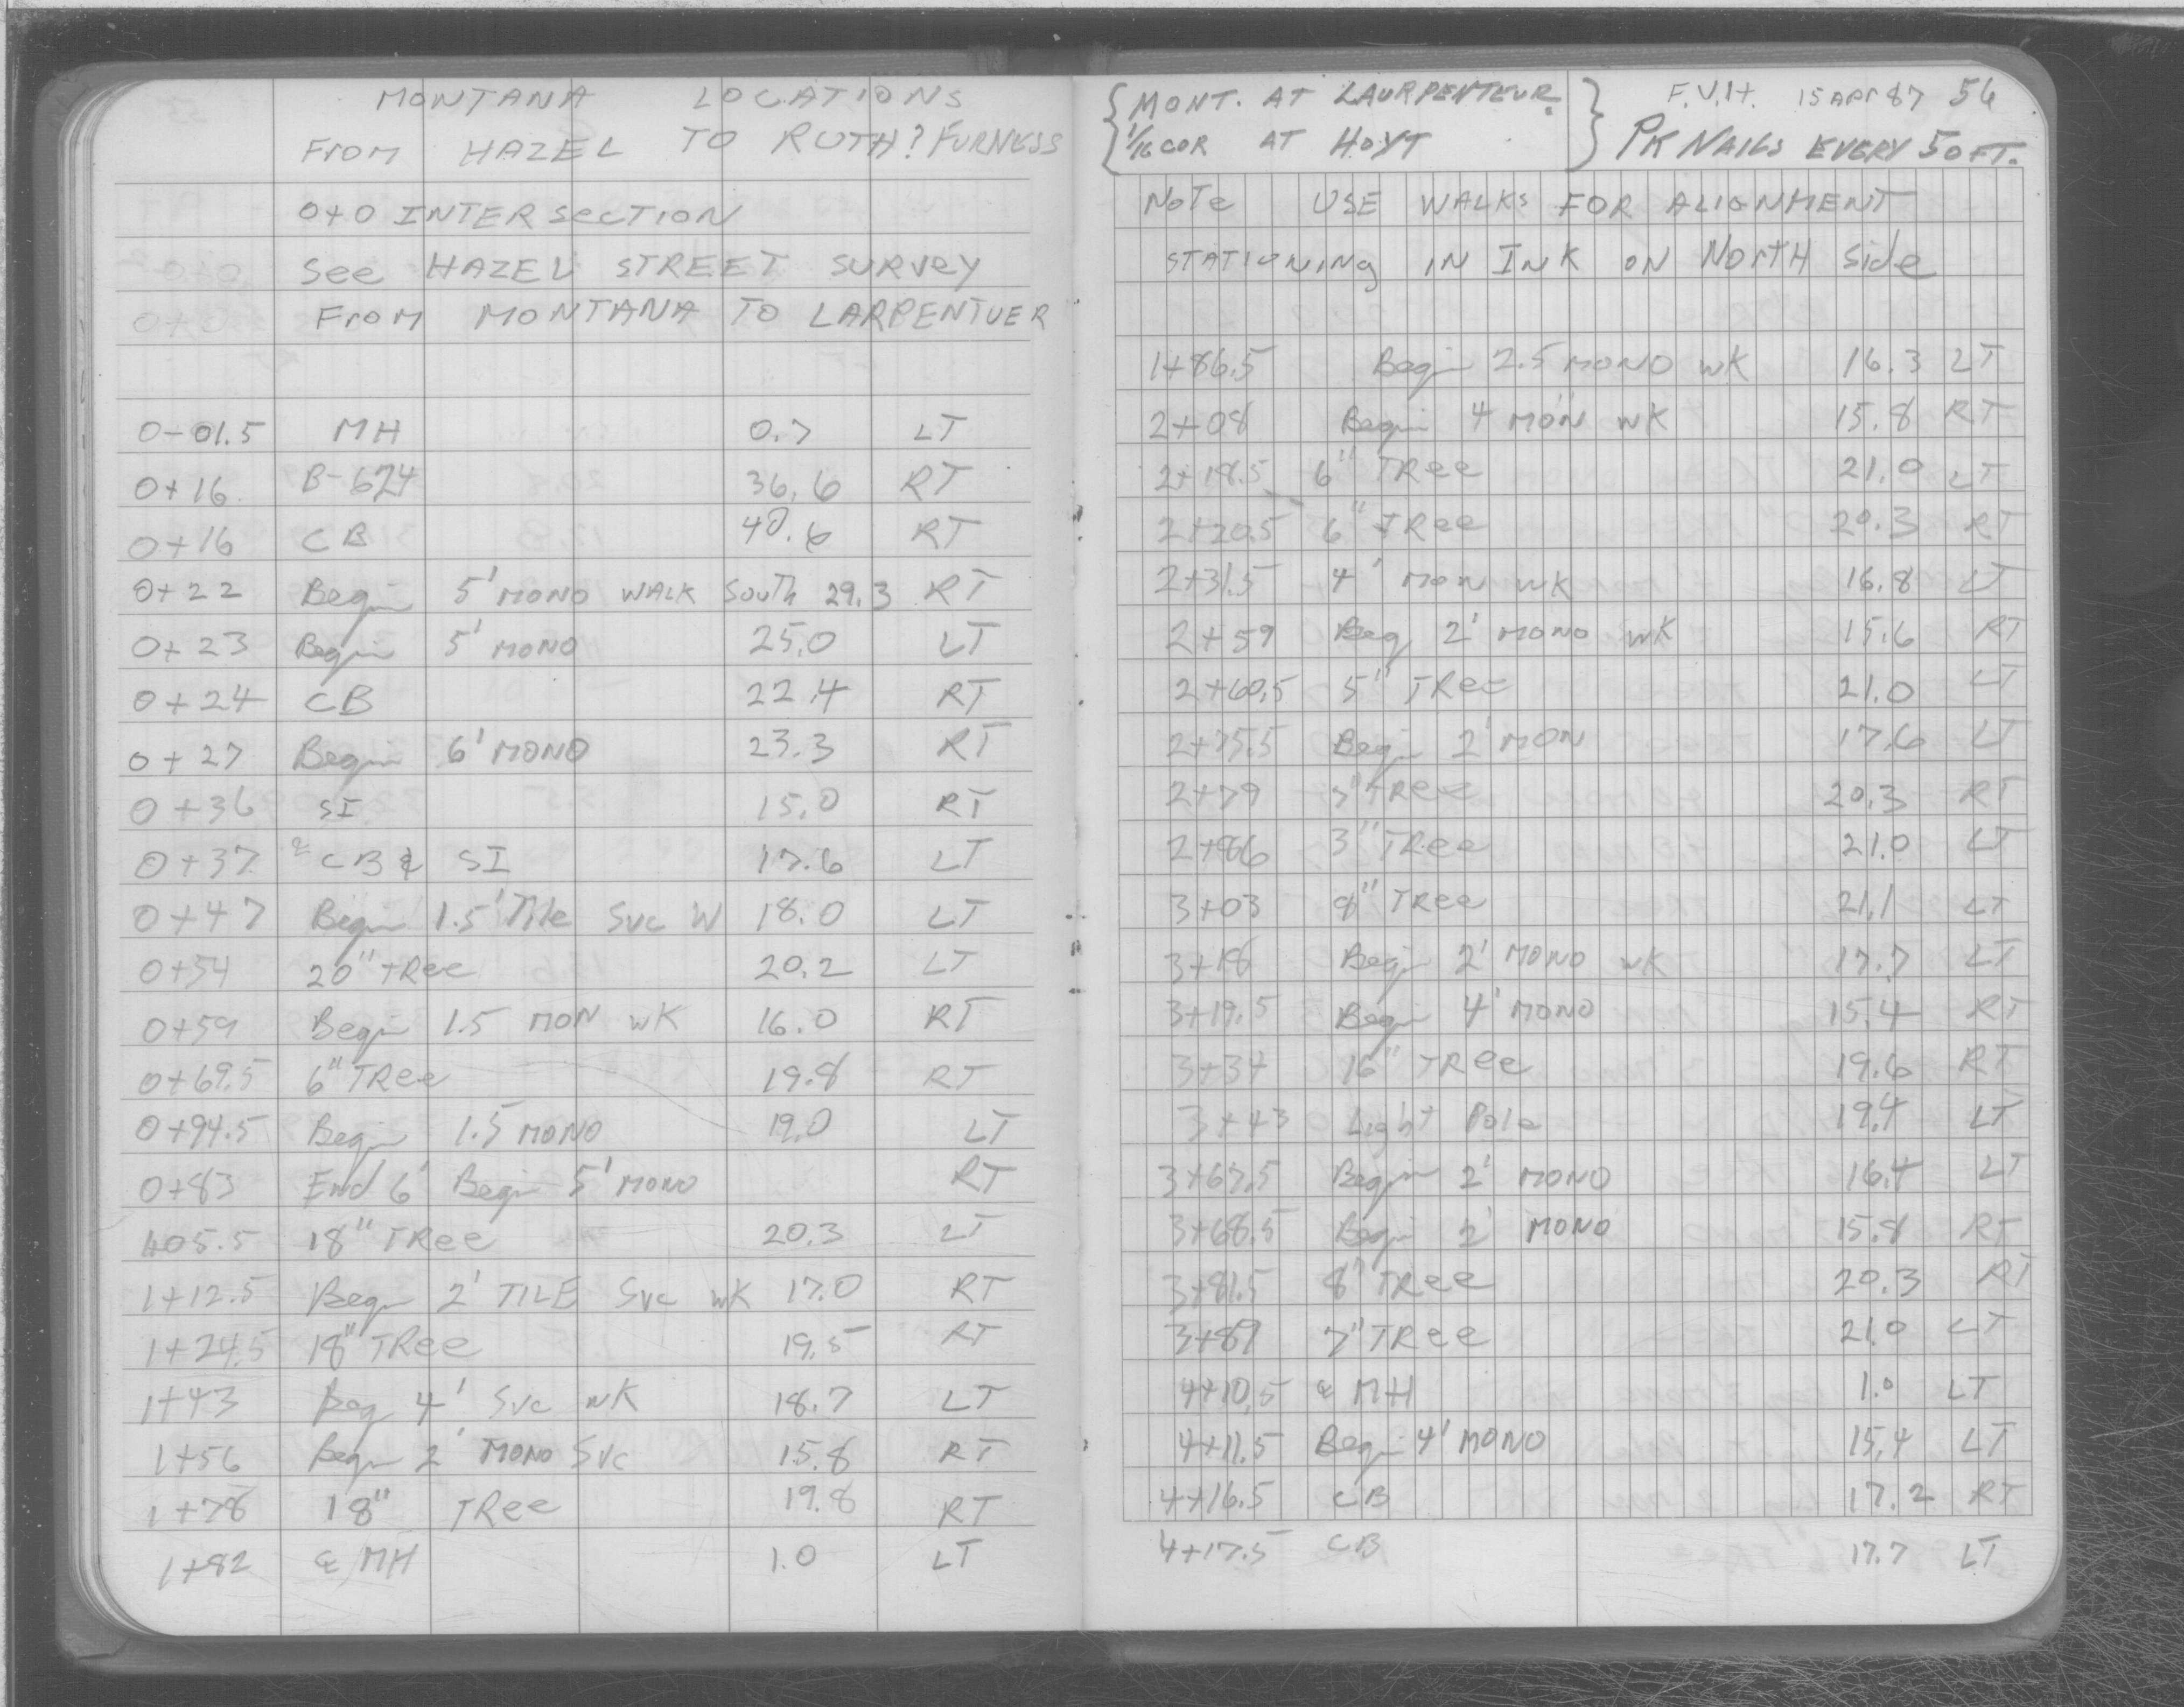 MONTANA LOCATIONS
From HAZEL TO RUTH? FURNESS
0+0 INTERSECTION
See HAZEL STREET SURVEY
From MONTANA TO LARPENTUER
0-01.5 MH 0.7 LT
0+16 B-624 36.6 RT
0+16 CB 40.6 RT
0+22 Begin 5' MONO WALK South 29.3 RT
0+23 Begin 5' MONO 25.0 LT
0+24 CB 22.4 RT
0+27 Begin 6' MONO 23.3 RT
0+36 SI 15.0 RT
0+37 CB & SI 17.6 LT
0+47 Begin 1.5' Tile Svc W 18.0 LT
0+54 20" TRee 20.2 LT
0+59 Begin 1.5 MON WK 16.0 RT
0+69.5 6" TRee 19.8 RT
0+94.5 Begin 1.5 MONO 19.0 LT
0+83 End 6' Begin 5' MONO RT
1+05.5 18" TRee 20.3 LT
1+12.5 Begin 2' TILE Svc WK 17.0 RT
1+24.5 18" TRee 19.5 RT
1+43 Beg 4' Svc WK 18.7 LT
1+56 Begin 2' MONO Svc 15.8 RT
1+78 18" TRee 19.8 RT
1+82 ℄ MH 1.0 LT
{ MONT. AT LAURPENTEUR. } F.V.H. 15 APr 87 56
1/16 COR AT HOYT PK NAILS EVERY 50 FT.
Note USE WALKS FOR ALIGNMENT
STATIONINg IN INK ON NortH Side
1+86.5 Begin 2.5 MONO WK 16.3 LT
2+08 Begin 4 MON WK 15.8 RT
2+18.5 6" TRee 21.0 LT
2+20.5 6" TRee 20.3 RT
2+31.5 4' Mon WK 16.8 LT
2+59 Beg 2' MONO WK 15.6 RT
2+60.5 5" TRee 21.0 LT
2+75.5 Begin 2' MON 17.6 LT
2+79 TRee 20.3 RT
2+86 3" TRee 21.0 LT
3+03 8" TRee 21.1 LT
3+18 Begin 2' MONO WK 17.7 LT
3+19.5 Begin 4' MONO 15.4 RT
3+34 16" TRee 19.6 RT
3+43 Light Pole 19.4 LT
3+67.5 Begin 2' MONO 16.4 LT
3+68.5 Begin 2' MONO 15.8 RT
3+81.5 8" TRee 20.3 RT
3+89 7" TRee 21.0 LT
4+10.5 ℄ MH 1.0 LT
4+11.5 Begin 4' MONO 15.4 LT
4+16.5 CB 17.2 RT
4+17.5 CB 17.7 LT